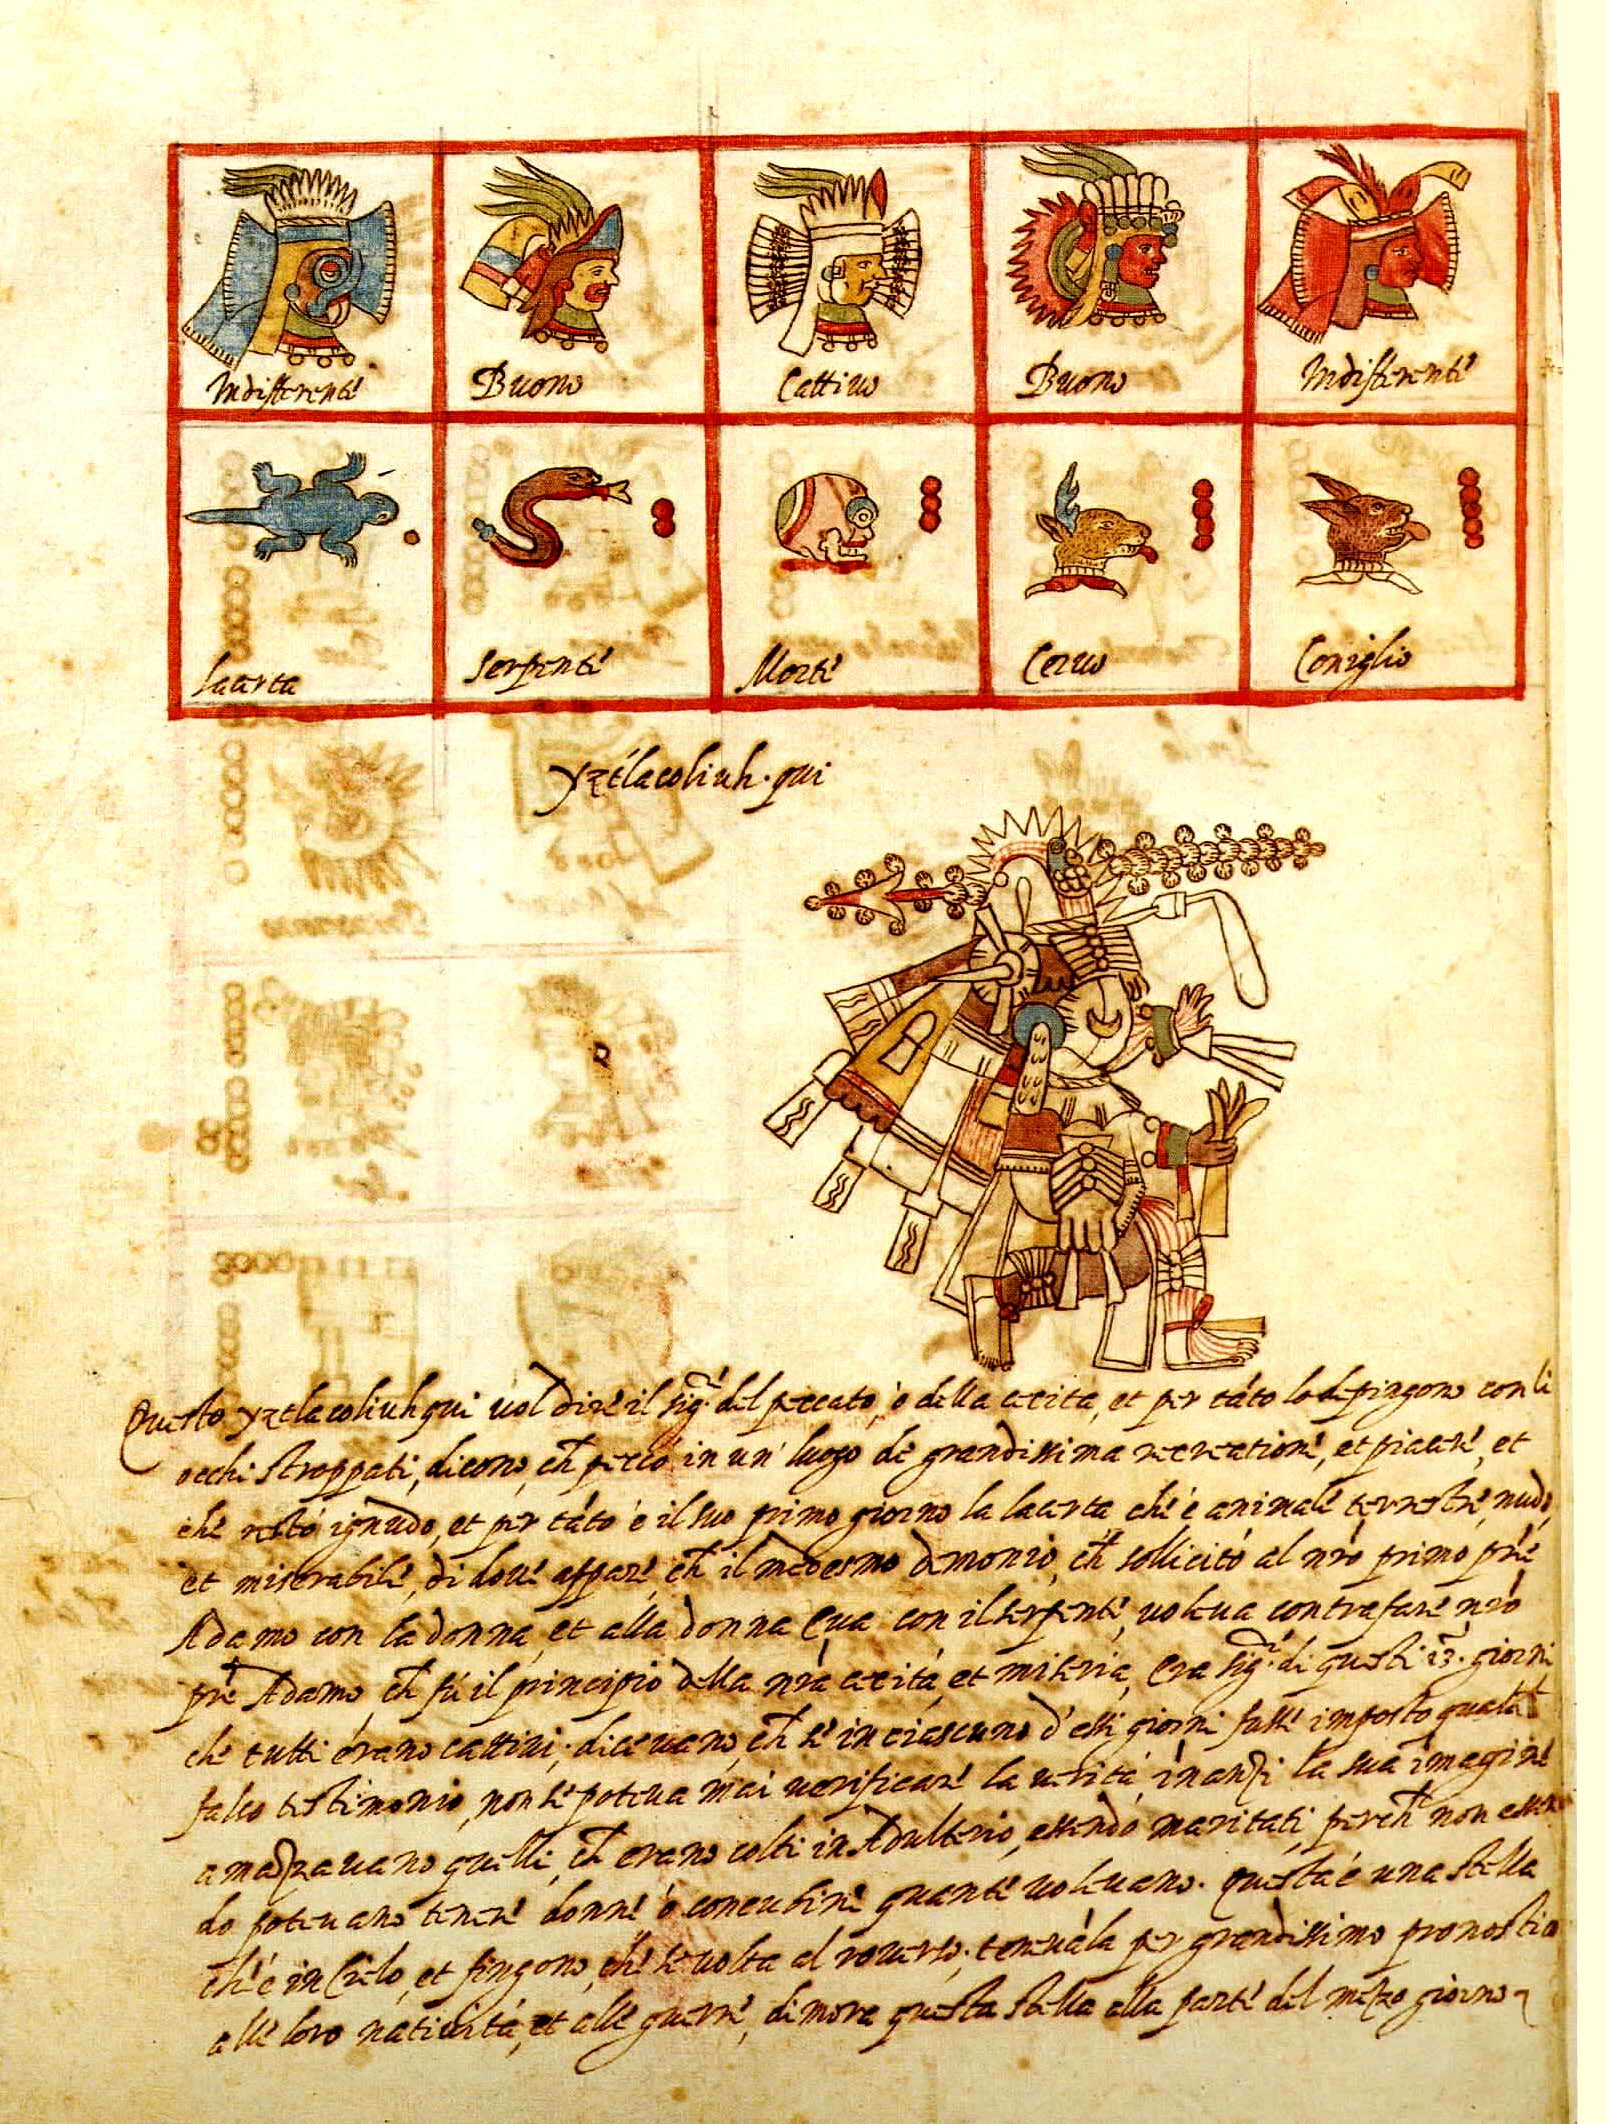 Indifferente Buono Cattiuo Buono Indifferente
lacerta serpente Morte Ceruo Coniglio
yztlacoliuh.qui
Questo yztlacoliuhqui uol dire il sig.re del peccato, ò della cecita, et per táto lo depingono con li
occhi stroppati, dicono, ch̃ peccó in un' luogo de grandissima recreatione, et piacere, et
che restó ignudo, et per táto é il suo primo giorno la lacerta che é animale terrestre, nudo,
et miserabile, di doue appare, ch̃ il medesmo demonio, ch̃ sollicitó al nr̃o primo pr̃e
Adamo con la donna, et alla donna Eua con il serpente, uoleua contrafare nr̃o
pr̃e Adamo, ch̃ fú il principio della nr̃a cecitá, et miseria, Era sig.re di questi 13. giorni
che tutti érano cattiui; diceuano, ch̃ se in ciascuno d'essi giorni fusse imposto qualch̃
falso testimonio, non se poteua mai uerificare la ueritá, inanzi la sua imagine
amazzauano quelli, ch̃ erano colti in Adulterio, essendo maritati, perch̃ non essen
do poteuano tenere donne ó concubine quante uoleuano. Questa é una stella
ch' é in Cielo, et fingono, che se uolta al rouerso; teneuála per grandissimo pronostico
alle loro natiuitá, et alle guerre, dimora questa stella alla parte del mezo giorno